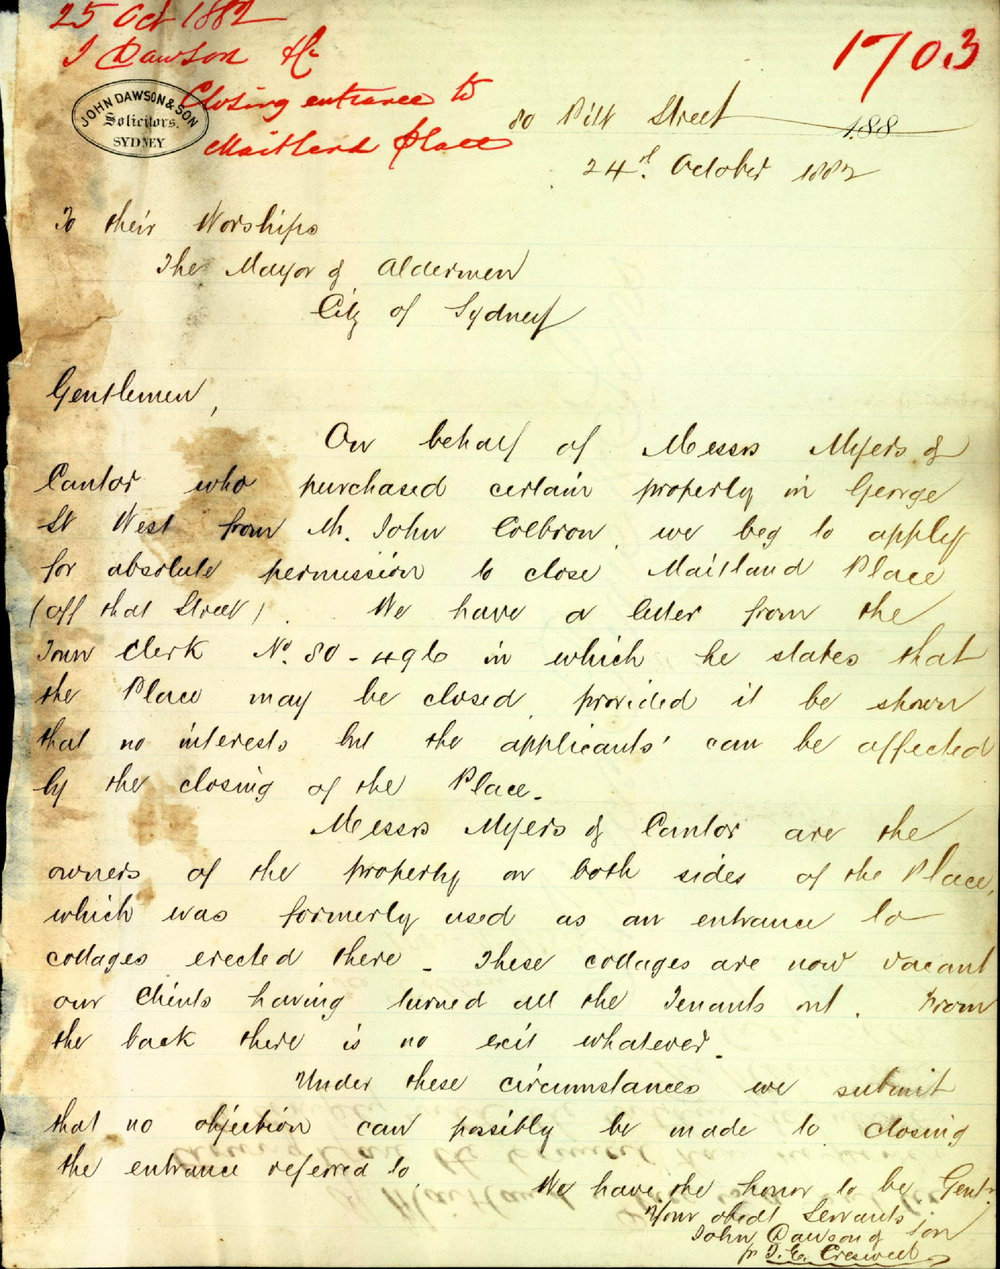 25 Oct 1882
J Dawson &c
Closing entrance to
Maitland Place
1703
JOHN DAWSON & SON
Solicitors.
SYDNEY
80 Pitt Street 188
24th October 1882
To their Worships
The Mayor & Aldermen
City of Sydney
Gentlemen,
On behalf of Messrs Myers &
Cantor who purchased certain property in George
St West from Mr. John Colbron we beg to apply
for absolute permission to close Maitland Place
(off that Street). We have a letter from the
Town Clerk No. 80-496 in which he states that
the Place may be closed, provided it be shown
that no interests but the applicants' can be affected
by the closing of the Place.
Messrs Myers & Cantor are the
owners of the property on both sides of the Place,
which was formerly used as an entrance to
cottages erected there. These cottages are now vacant
our Clients having turned all the Tenants out. From
the back there is no exit whatever.
Under these circumstances we submit
that no objection can possibly be made to closing
the entrance referred to.
We have the honor to be Gentn
Your obedt Servants
John Dawson & Son
pr J. E. Creswell